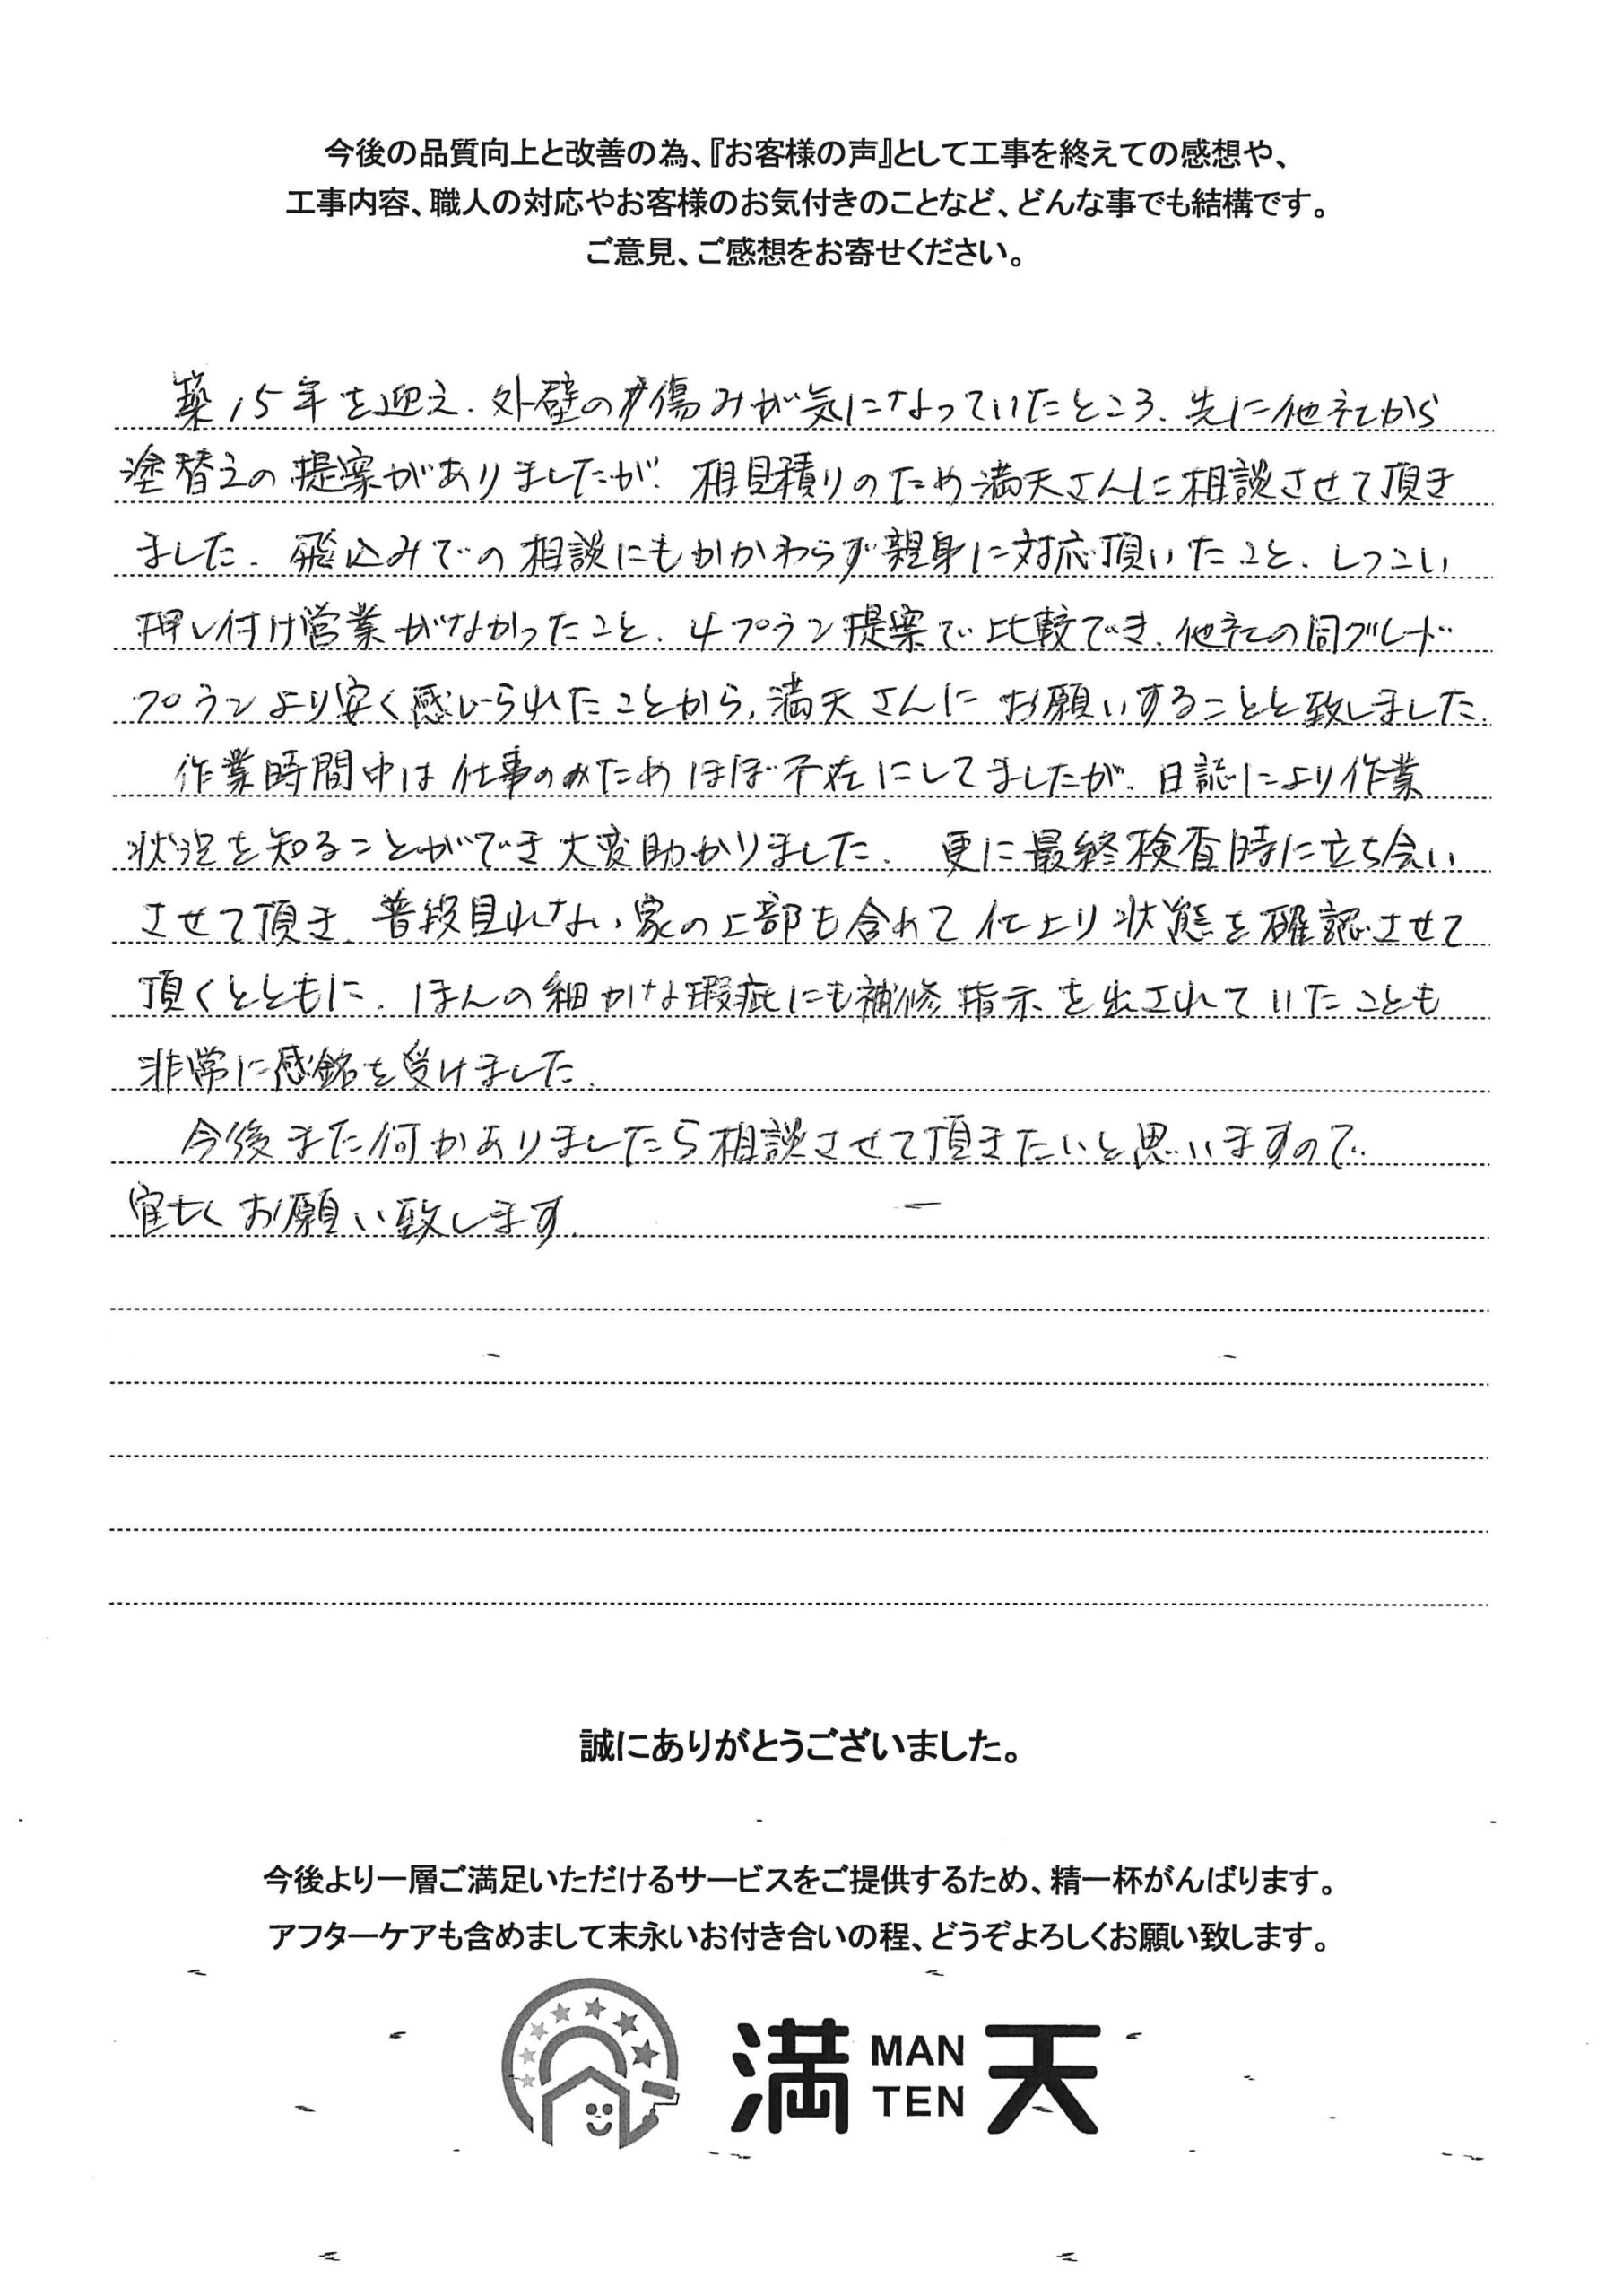 今後の品質向上と改善の為、『お客様の声』として工事を終えての感想や、
工事内容、職人の対応やお客様のお気付きのことなど、どんな事でも結構です。
ご意見、ご感想をお寄せください。
築15年を迎え、外壁の傷みが気になっていたところ、先に他社から
塗替えの提案がありましたが、相見積りのため満天さんに相談させて頂き
ました。飛込みでの相談にもかかわらず親身に対応頂いたこと、しつこい
押し付け営業がなかったこと、4プラン提案で比較でき、他社の同グレード
プランより安く感じられたことから、満天さんにお願いすることと致しました。
作業時間中は仕事のためほぼ不在にしてましたが、日誌により作業
状況を知ることができ大変助かりました。更に最終検査時に立ち会い
させて頂き、普段見れない家の上部も含めて仕上り状態を確認させて
頂くとともに、ほんの細かな瑕疵にも補修指示を出されていたことも
非常に感銘を受けました。
今後また何かありましたら相談させて頂きたいと思いますので、
宜しくお願い致します。
誠にありがとうございました。
今後より一層ご満足いただけるサービスをご提供するため、精一杯がんばります。
アフターケアも含めまして末永いお付き合いの程、どうぞよろしくお願い致します。
満 MAN TEN 天